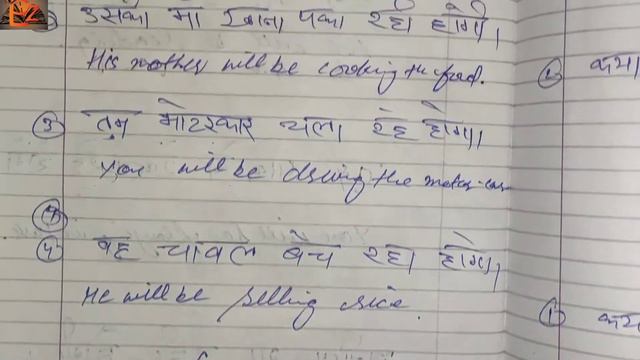 उसकी माँ खाना पका रही होगी।
His mother will be cooking the food.
③ तुम मोटरकार चला रहे होगे।
You will be driving the motor-car
④
④ वह चावल बेच रहा होगा।
He will be selling rice.